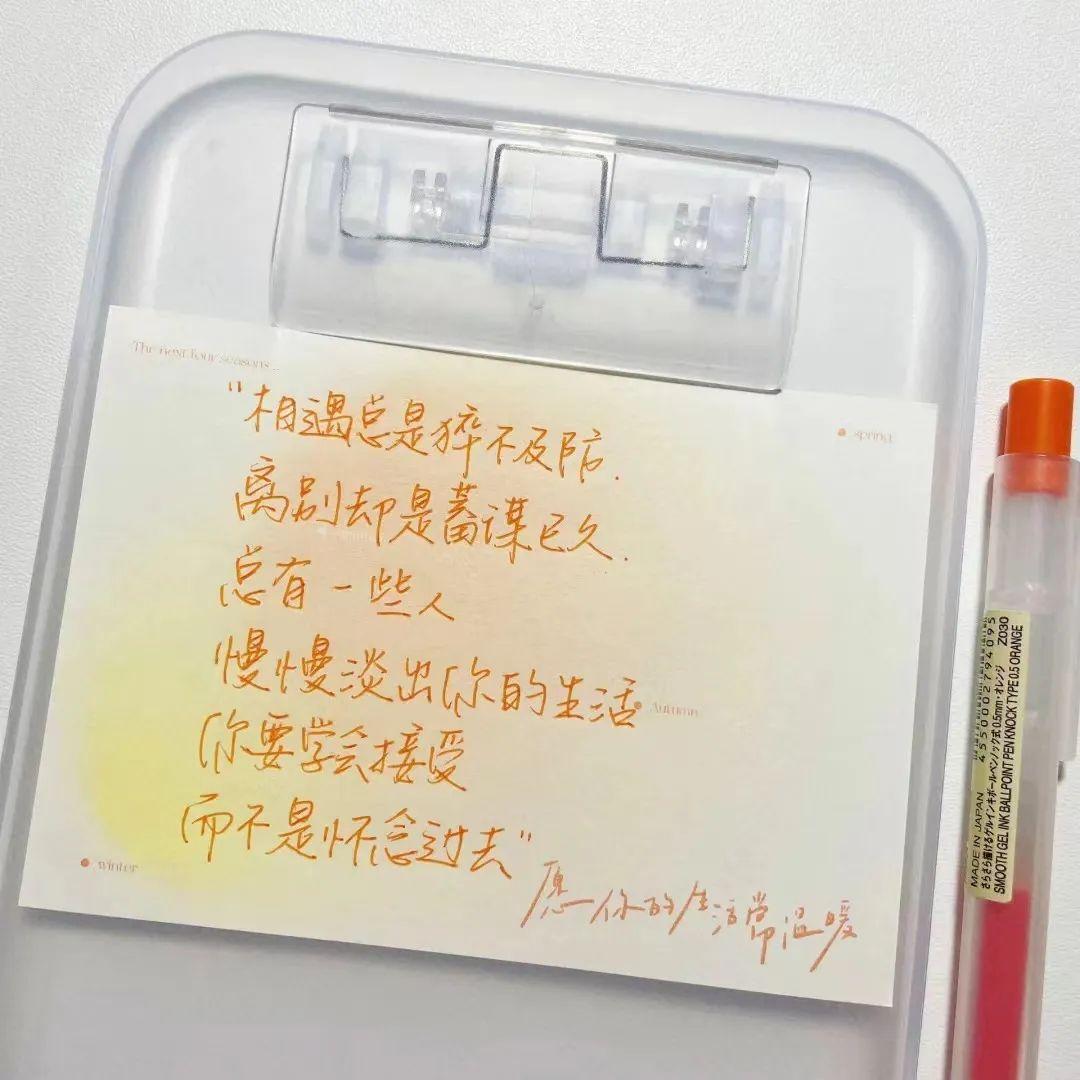 The next four seasons...
“相遇总是猝不及防.
spring
离别却是蓄谋已久.
总有一些人
慢慢淡出你的生活
Autumn
你要学会接受
而不是怀念过去”
winter
愿你的生活常温暖
MADE IN JAPAN 4550002794095
さらさら描けるゲルインキボールペンノック式 0.5mm・オレンジ Z030
SMOOTH GEL INK BALLPOINT PEN KNOCK TYPE 0.5 ORANGE